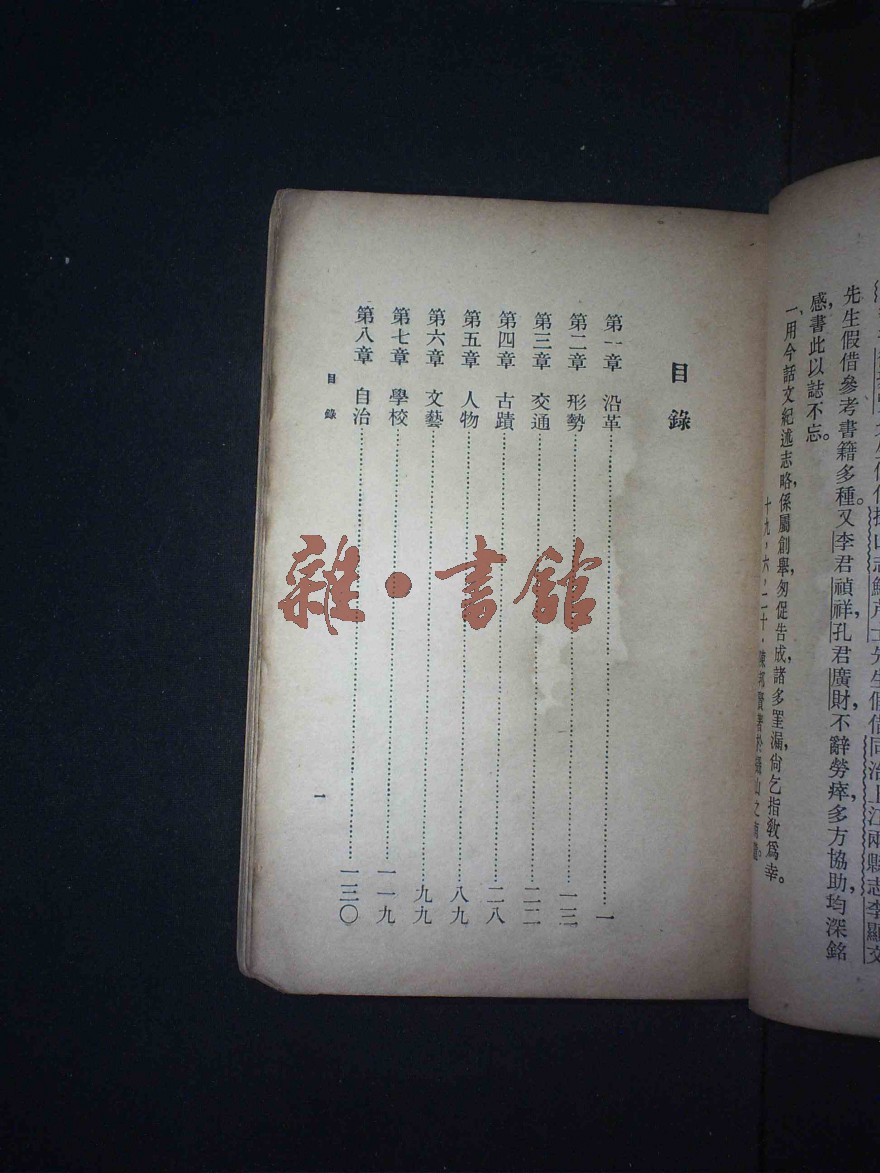 先生假借參考書籍多種。又李君禎祥,孔君廣財,不辭勞瘁,多方協助,均深銘
感,書此以誌不忘。
一、用今話文紀述志略,係屬創舉,匆促告成,諸多罣漏,尙乞指敎爲幸。
十九,六,二十,陳
目錄
第一章 沿革……一
第二章 形勢……一三
第三章 交通……二二
第四章 古蹟……二八
第五章 人物……八九
第六章 文藝……九九
第七章 學校……一一九
第八章 自治……一三〇
目錄
一
雜·書館